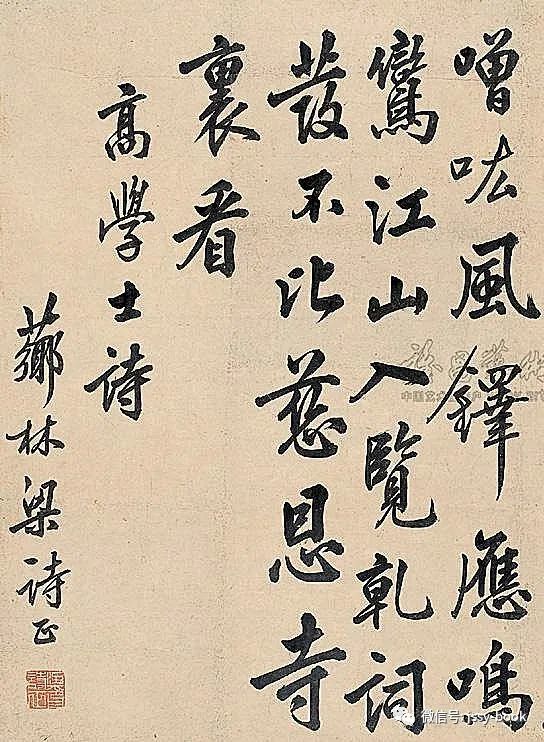 噌吰風鐸應鳴
鸞江山入覽乾詞
發不比慈恩寺
裏看
高學士詩
薌林梁詩正
微信号: issy-book